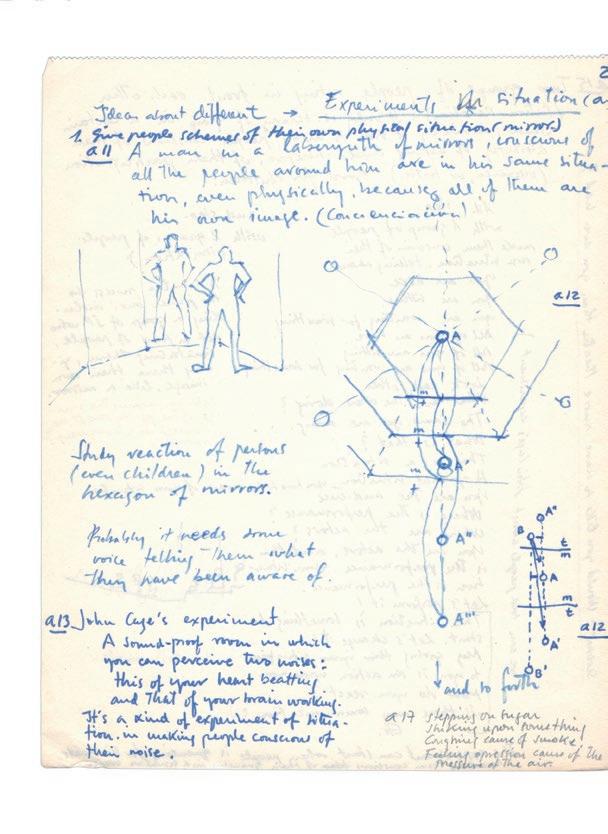 2
Ideas about different → Experiments in situation (a
1. Give people schemes of their own physical situation (mirror)
a11 A man in a labyrinth of mirrors, conscious of
all the people around him are in his same situa-
tion, even physically, because all of them are
his own image. (Concienciación)
a12
A
m
t
m
t
A'
m
t
A"
A'''
↓ and so forth
Study reaction of persons
(even children) in the
hexagon of mirrors.
Probably it needs some
voice telling them what
they have been aware of.
A"
B
t
m
A
m
t
A'
B'
a12
a13 John Cage's experiment
A sound-proof room in which
you can perceive two noises:
this of your heart beatting
and that of your brain working.
It's a kind of experiment of situa-
tion. in making people conscious of
their noise.
a17 stepping on sugar
upon something
Coughing cause of smoke.
Feeling opression cause of the
pressure of the air.